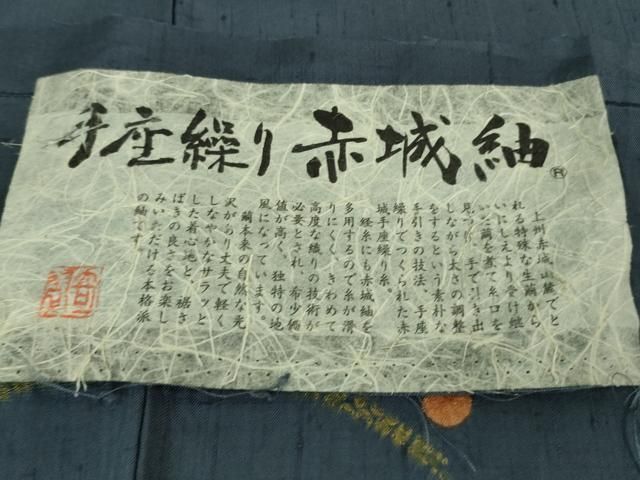 手座繰り 赤城紬®
上州赤城山麓でと
れる特殊な生繭から
いにしえより受け継
いだ繭を煮て糸口を
見つけ、手で引き出
しながら太さの調整
をするという素朴な
手引きの技法、手座
繰りでつくられた赤
城手座繰り糸。
経糸にも赤城紬を
多用するので糸が滑
りにくく、きわめて
高度な織りの技術が
必要とされ、希少価
値が高く、独特の地
風になっています。
繭本来の自然な光
沢があり丈夫で軽く
しなやかなサラッと
した着心地と、裾さ
ばきの良さをお楽し
みいただける本格派
の紬です。